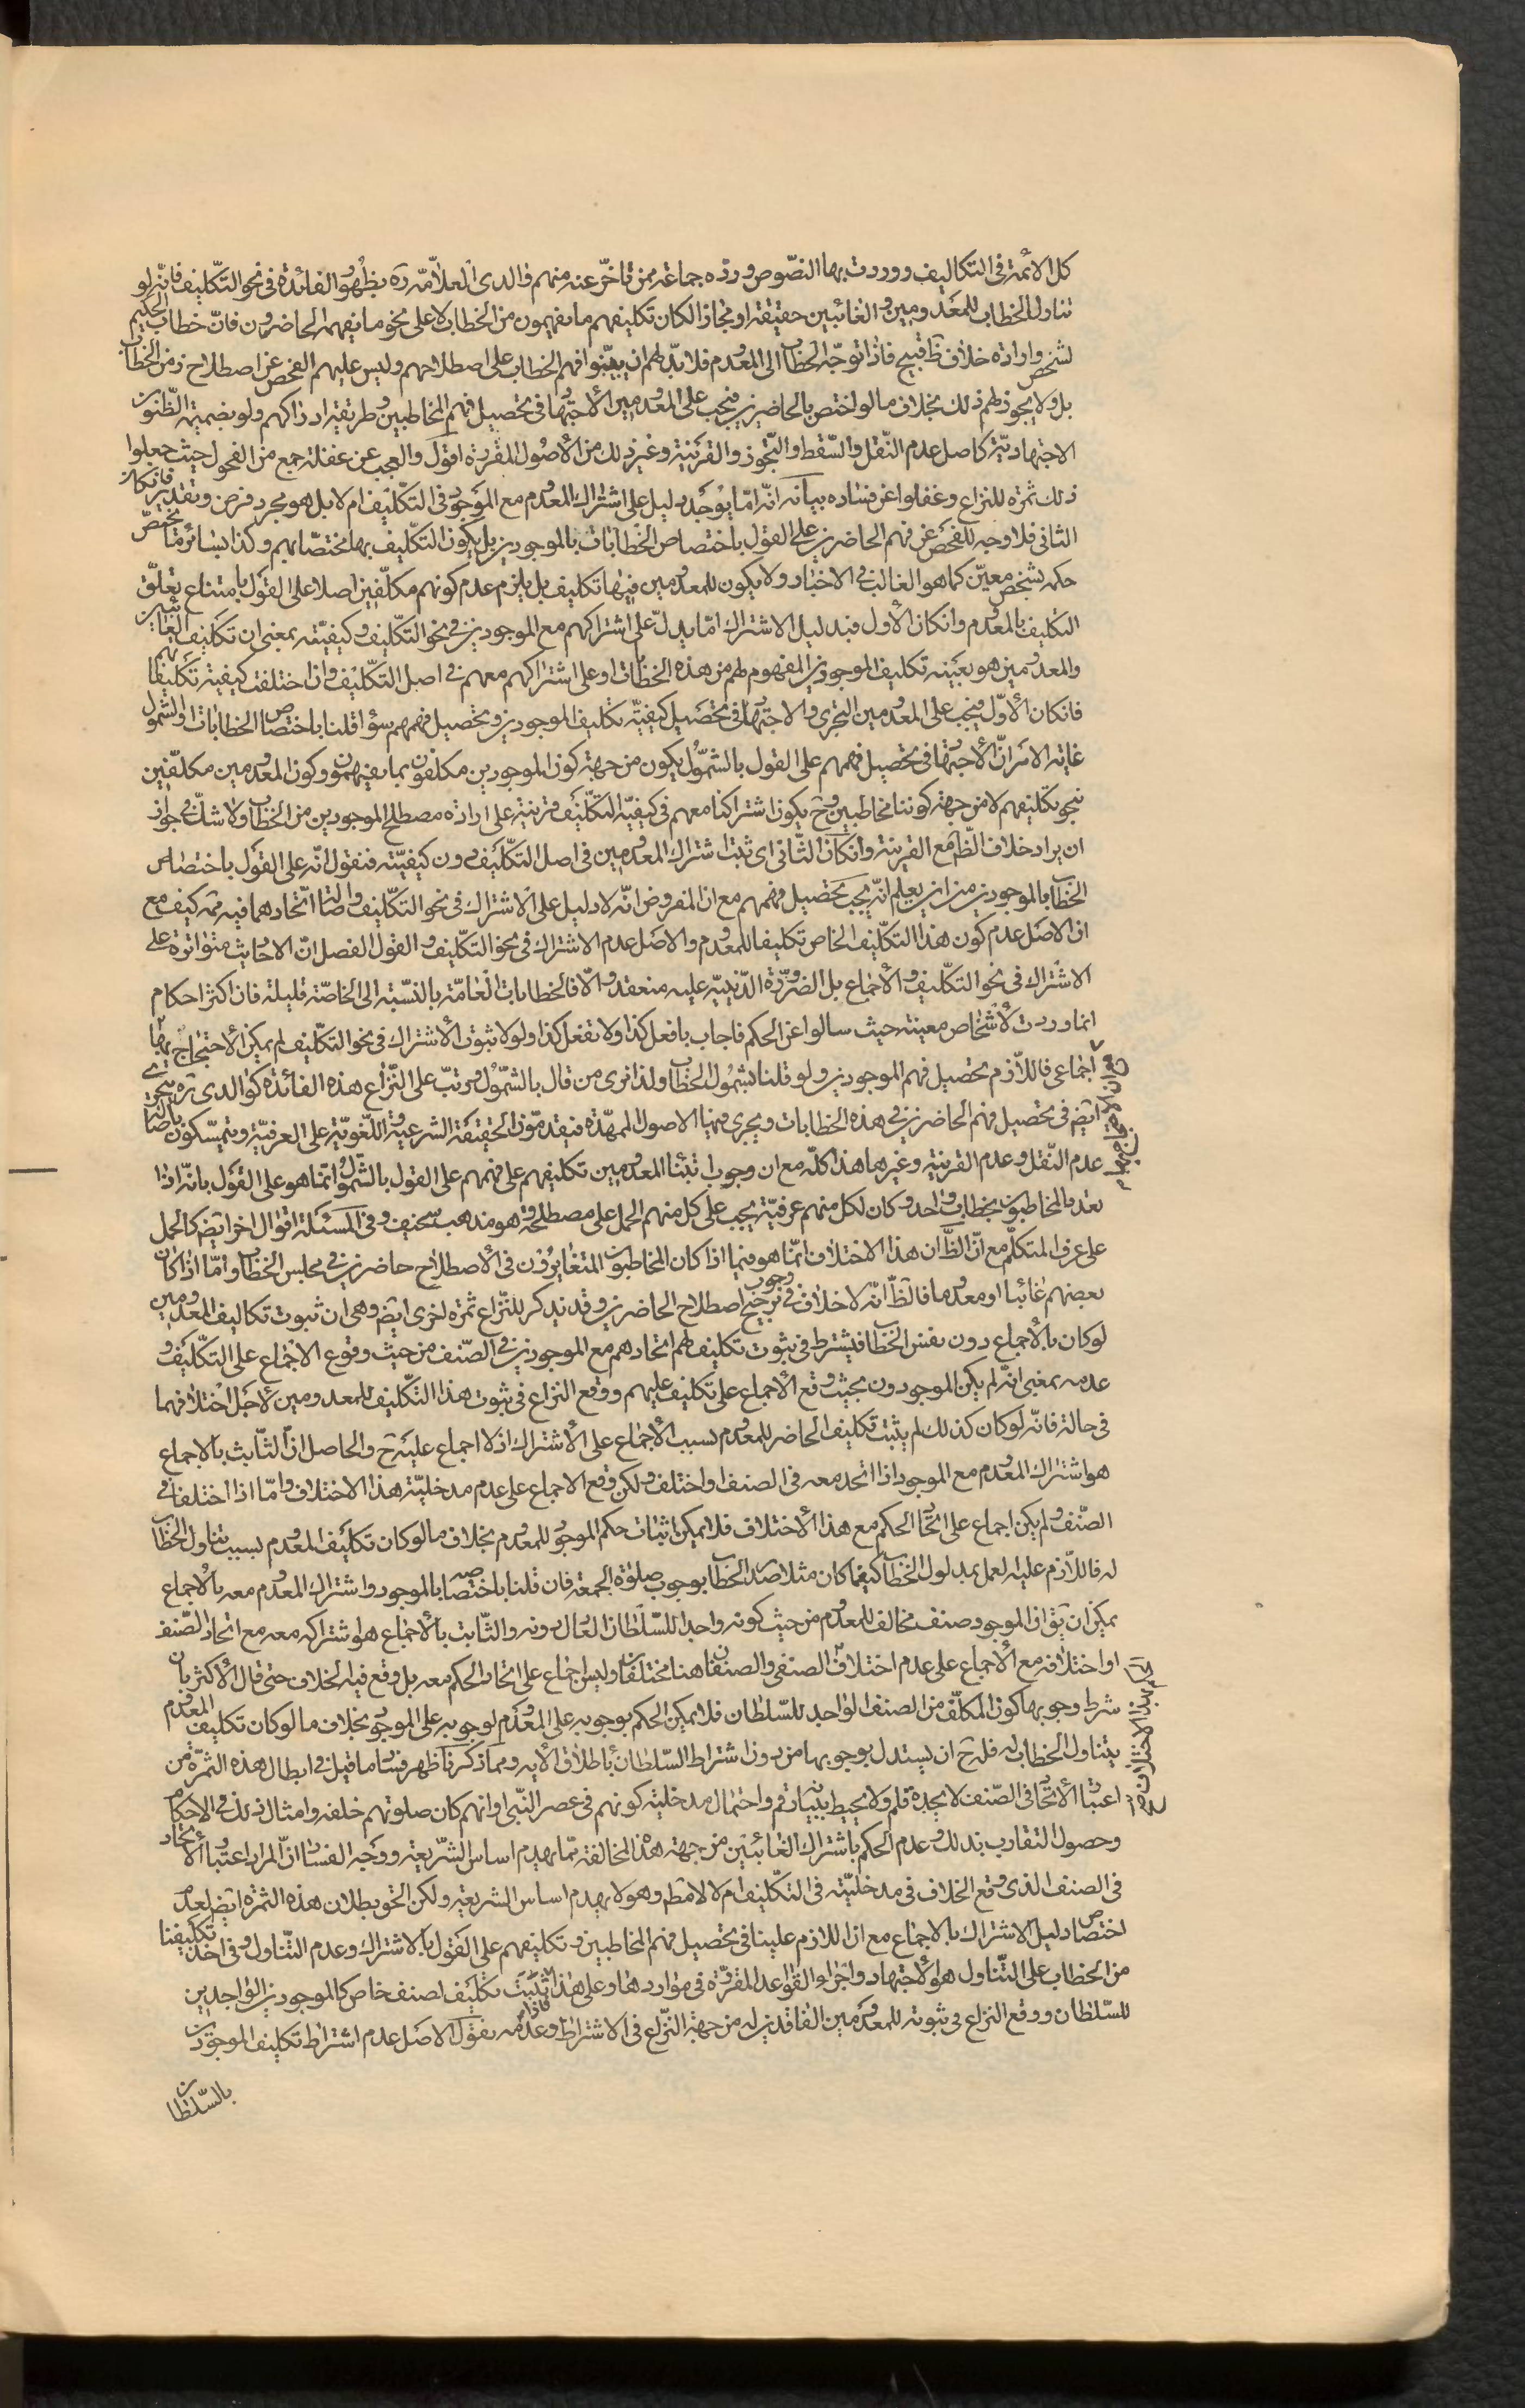 كل الأئمة في التكاليف ووردت بها النصّوص وردّه جماعة ممن تاخّر عنه منهم والدى العلاّمة ره بظهور الفائدة في نحو التكليف فانّه لو
تناول الخطاب للمعدومين والغائبين حقيقة او مجازا لكان تكليفهم ما يفهمون من الخطاب لا على نحو ما يفهمه الحاضرون فانّ خطاب الحكيم
لشخص وارادة خلاف ظ قبيح فاذا توجّه الخطاب الى المعدوم فلا بدّ لهم ان يبيّنوا فهم الخطاب على اصطلاحهم وليس عليهم الفحص عن اصطلاح زمن الخطاب
بل ولا يجوز لهم ذلك بخلاف ما لو اختص بالحاضرين فيجب على المعدومين الأجتهاد في تحصيل فهم المخاطبين وطريقة ادراكهم ولو بضميمة الظنون
الاجتهاديّة كاصل عدم النّقل والسّقط والتّجوز والقرينة وغير ذلك من الأصول المقررة اقول والعجب عن غفلة جمع من الفحول حيث جعلوا
ذلك ثمرة للنزاع وغفلوا عن فساده بيانه انّه امّا يوجد دليل على اشتراك المعدوم مع الموجود في التكليف ام لا بل هو مجرد فرض وتقدير فانكان
الثاني فلا وجه للفحص عن فهم الحاضرين على القول باختصاص الخطابات بالموجودين بل يكون التكليف بها مختصّا بهم وكذا بسائر ما يختصّ
حكمه بشخص معيّن كما هو الغالب في الاخبار ولا يكون للمعدومين فيها تكليف بل يلزم عدم كونهم مكلّفين اصلا على القول بامتناع تعلّق
التكليف بالمعدوم وانكان الأول فبدليل الاشتراك امّا يدلّ على اشتراكهم مع الموجودين في نحو التكليف وكيفيّته بمعنى ان تكليف الغائبين
والمعدومين هو بعينه تكليف الموجودين المفهوم لهم من هذه الخطابات او على اشتراكهم معهم في اصل التكليف وان اختلفت كيفية تكليفاتهم
فانكان الأوّل فيجب على المعدومين التحرى والاجتهاد في تحصيل كيفيّة تكليف الموجودين وتحصيل فهمهم سواء قلنا باختصاص الخطابات او الشمول
غاية الامر انّ الأجتهاد في تحصيل فهمهم على القول بالشمّول يكون من جهة كون الموجودين مكلفون بما يفهمون وكون المعدومين مكلّفين
بنحو تكليفهم لا من جهة كوننا مخاطبين وح يكون اشتراكنا معهم في كيفيّة التكليف قرينة على ارادة مصطلح الموجودين من الخطاب ولا شك في جواز
ان يراد خلاف الظّ مع القرينة وانكان الثّاني اي ثبت اشتراك المعدومين في اصل التكليف دون كيفيّته فنقول انّه على القول باختصاص
الخطاب بالموجودين من اين يعلم انّه يجب تحصيل فهمهم مع ان المفروض انّه لا دليل على الاشتراك في نحو التكليف واصالة اتحادهما فيه ثمّ كيف مع
ان الاصل عدم كون هذا التكليف الخاص تكليفا للمعدوم والاصل عدم الاشتراك في نحو التكليف والقول الفصل انّ الاحاديث متواترة على
الاشتراك في نحو التكليف والأجماع بل الضرورة الدّينيّة عليه منعقد والّا فالخطابات العامّة بالنسّبة الى الخاصّة قليلة فان اكثر احكام
انما وردت لأشخاص معينة حيث سالوا عن الحكم فاجاب بافعل كذا ولا تفعل كذا ولولا ثبوت الأشتراك في نحو التكليف لم يمكن الأحتجاج بها
اجماعى فاللاّزم تحصيل فهم الموجودين ولو قلنا بشمول الخطاب ولذا نرى من قال بالشمّول ورتّب على النّزاع هذه الفائدة كوالدى ره يتحرى
ايضم في تحصيل فهم الحاضرين في هذه الخطابات ويجرى فيها الاصول الممهّدة فيقدمون الحقيقة الشرعية واللّغويّة على العرفيّة ويتمسّكون باصالة
عدم النّقل وعدم القرينة وغيرها هذا كلّه مع ان وجوب ابتناء المعدومين تكليفهم على فهمهم على القول بالشمّول انّما هو على القول بانّه اذا
تعدد المخاطبون بخطاب واحد وكان لكل منهم عرفيّة يجب على كل منهم الحمل على مصطلحه وهو مذهب سخيف وفي المسئلة اقوال اخر ايضم كالحمل
على عرف المتكلّم مع انّ الظّ ان هذا الاختلاف انّما هو فيما اذا كان المخاطبون المتغايرون في الأصطلاح حاضرين في مجلس الخطاب وامّا اذا كان
بعضهم غائبا او معدوما فالظّ انّه لا خلاف في وجوب ترجيح اصطلاح الحاضرين وقد يذكر للنّزاع ثمرة اخرى ايضم وهى ان ثبوت تكاليف المعدومين
لو كان بالأجماع دون نفس الخطاب فيشترط في ثبوت تكليف لهم اتحادهم مع الموجودين في الصّنف من حيث وقوع الاجماع على التكليف و
عدمه بمعنى انّه لم يكن الموجودون بحيث وقع الأجماع على تكليف عليهم ووقع النزاع في ثبوت هذا التكليف للمعدومين لأجل اختلافهما
في حالة فانّه لو كان كذلك لم يثبت تكليف الحاضر للمعدوم بسبب الأجماع على الأشتراك اذ لا اجماع عليه ح والحاصل انّ الثّابت بالاجماع
هو اشتراك المعدوم مع الموجود اذا اتحد معه في الصنف او اختلف ولكن وقع الاجماع على عدم مدخليّة هذا الاختلاف وامّا اذا اختلفا في
الصّنف ولم يكن اجماع على اتحاد الحكم مع هذا الأختلاف فلا يمكن اثبات حكم الموجود للمعدوم بخلاف ما لو كان تكليف المعدوم بسبب تناول الخطاب
له فاللاّزم عليه العمل بمدلول الخطاب كيفما كان مثلا صدر الخطاب بوجوب صلوة الجمعة فان قلنا باختصاصه بالموجود واشتراك المعدوم معه بالأجماع
يمكن ان يق ان الموجود صنف مخالف للمعدوم من حيث كونه واجدا للسّلطان العادل دونه والثّابت بالأجماع هو اشتراكه معه مع اتحاد الصّنف
او اختلافه مع الأجماع على عدم اختلاف الصنفى والصنفان هنا مختلفان وليس اجماع على اتحاد الحكم معه بل وقع فيه الخلاف حتى قال الأكثر بان
شرط وجوبها كون المكلّف من الصنف الواجد للسّلطان فلا يمكن الحكم بوجوبه على المعدوم لوجوبه على الموجود بخلاف ما لو كان تكليف المعدوم
بتناول الخطاب له فله ح ان يستدل بوجوبها من دون اشتراط السّلطان باطلاق الأية ومما ذكرنا ظهر فساد ما قيل في ابطال هذه الثمرة من
اعتبار الأتحاد في الصّنف لا يجده قلم ولا يحيط ببيانه رقم واحتمال مدخلية كونهم في عصر النّبى او انهم كان صلوتهم خلفه وامثال ذلك في الاحكام
وحصول التقارب بذلك وعدم الحكم باشتراك الغائبين من جهة هذا المخالفة ممّا يهدم اساس الشّريعة ووجه الفساد انّ المراد اعتبار الأتحاد
في الصنف الذى وقع الخلاف في مدخليّته في التكليف ام لا لا مطم وهو لا يهدم اساس الشريعة ولكن الحق بطلان هذه الثمرة ايضم لعدم
اختصاص دليل الاشتراك بالاجماع مع ان اللازم علينا في تحصيل فهم المخاطبين وتكليفهم على القول بالاشتراك وعدم التّناول وفي اخذ تكليفنا
من الخطاب على التّناول هو الأجتهاد واجراء القواعد المقررة في مواردها وعلى هذا فاذا ثبت تكليف لصنف خاص كالموجودين الواجدين
للسّلطان ووقع النزاع في ثبوته للمعدومين الفاقدين له من جهة النّزاع في الاشتراط وعدمه نقول الاصل عدم اشتراط تكليف الموجودين
بالسّلطان